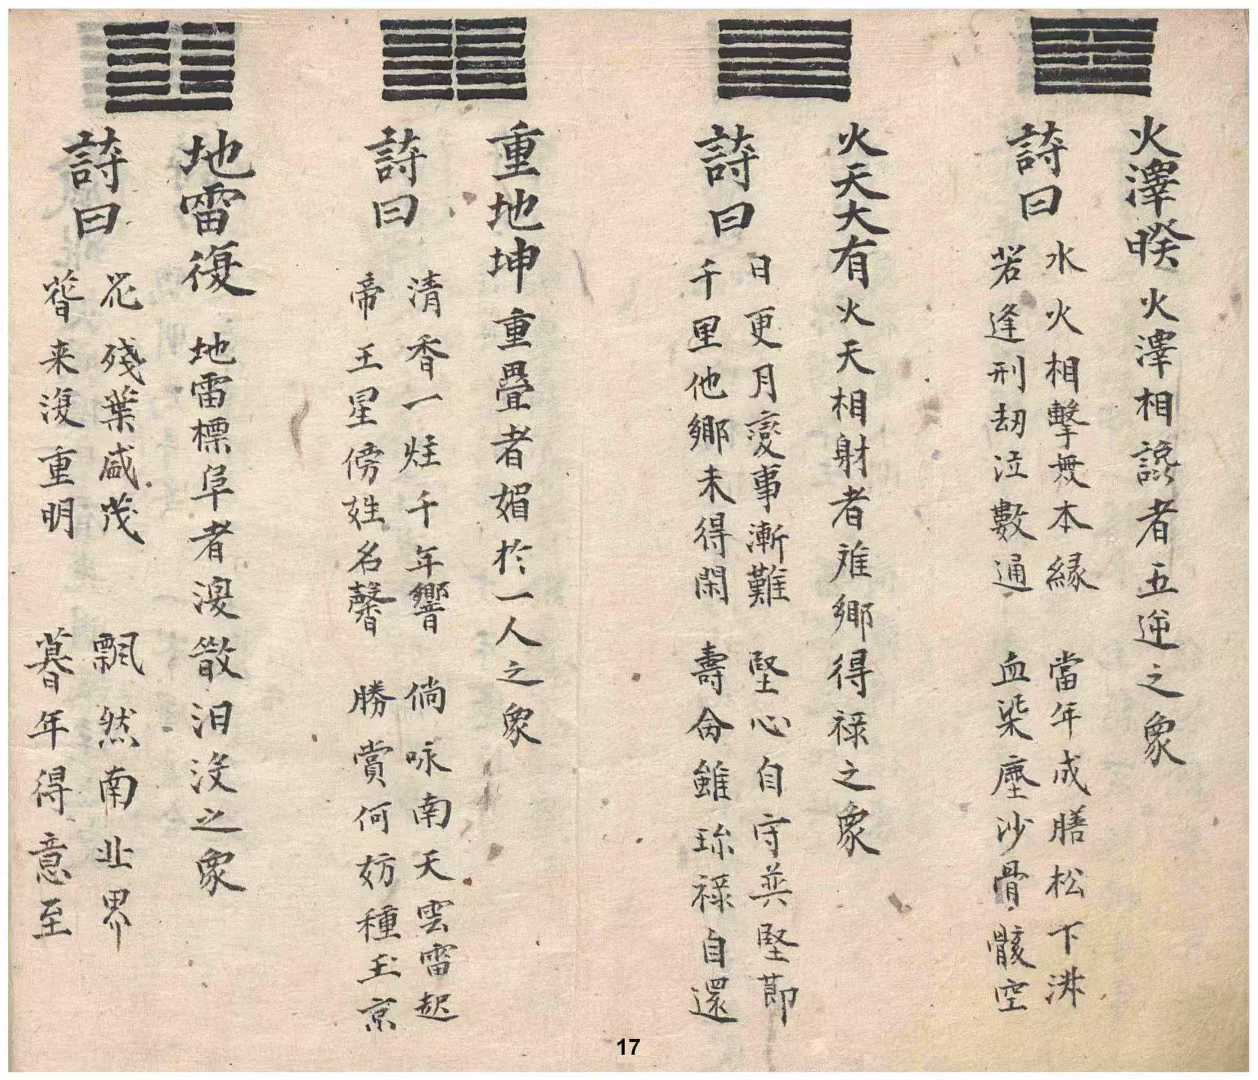 火澤睽 火澤相說者五逆之象
詩曰
水火相擊無本緣 當年成膳松下淋
若逢刑劫泣數通 血染塵沙骨骸空
火天大有 火天相射者难鄉得祿之象
詩曰
日更月變事漸難 堅心自守英堅節
千里他鄉未得閑 壽命雖珎祿自還
重地坤 重疊者媚於一人之象
詩曰
清香一炷千年響 倘咏南天雲雷起
帝王星傍姓名馨 勝賞何妨種玉京
地雷復 地雷標阜者溭散汨没之象
詩曰
花殘葉盛茂 飄然南北界
昝来復重明 暮年得意至
17